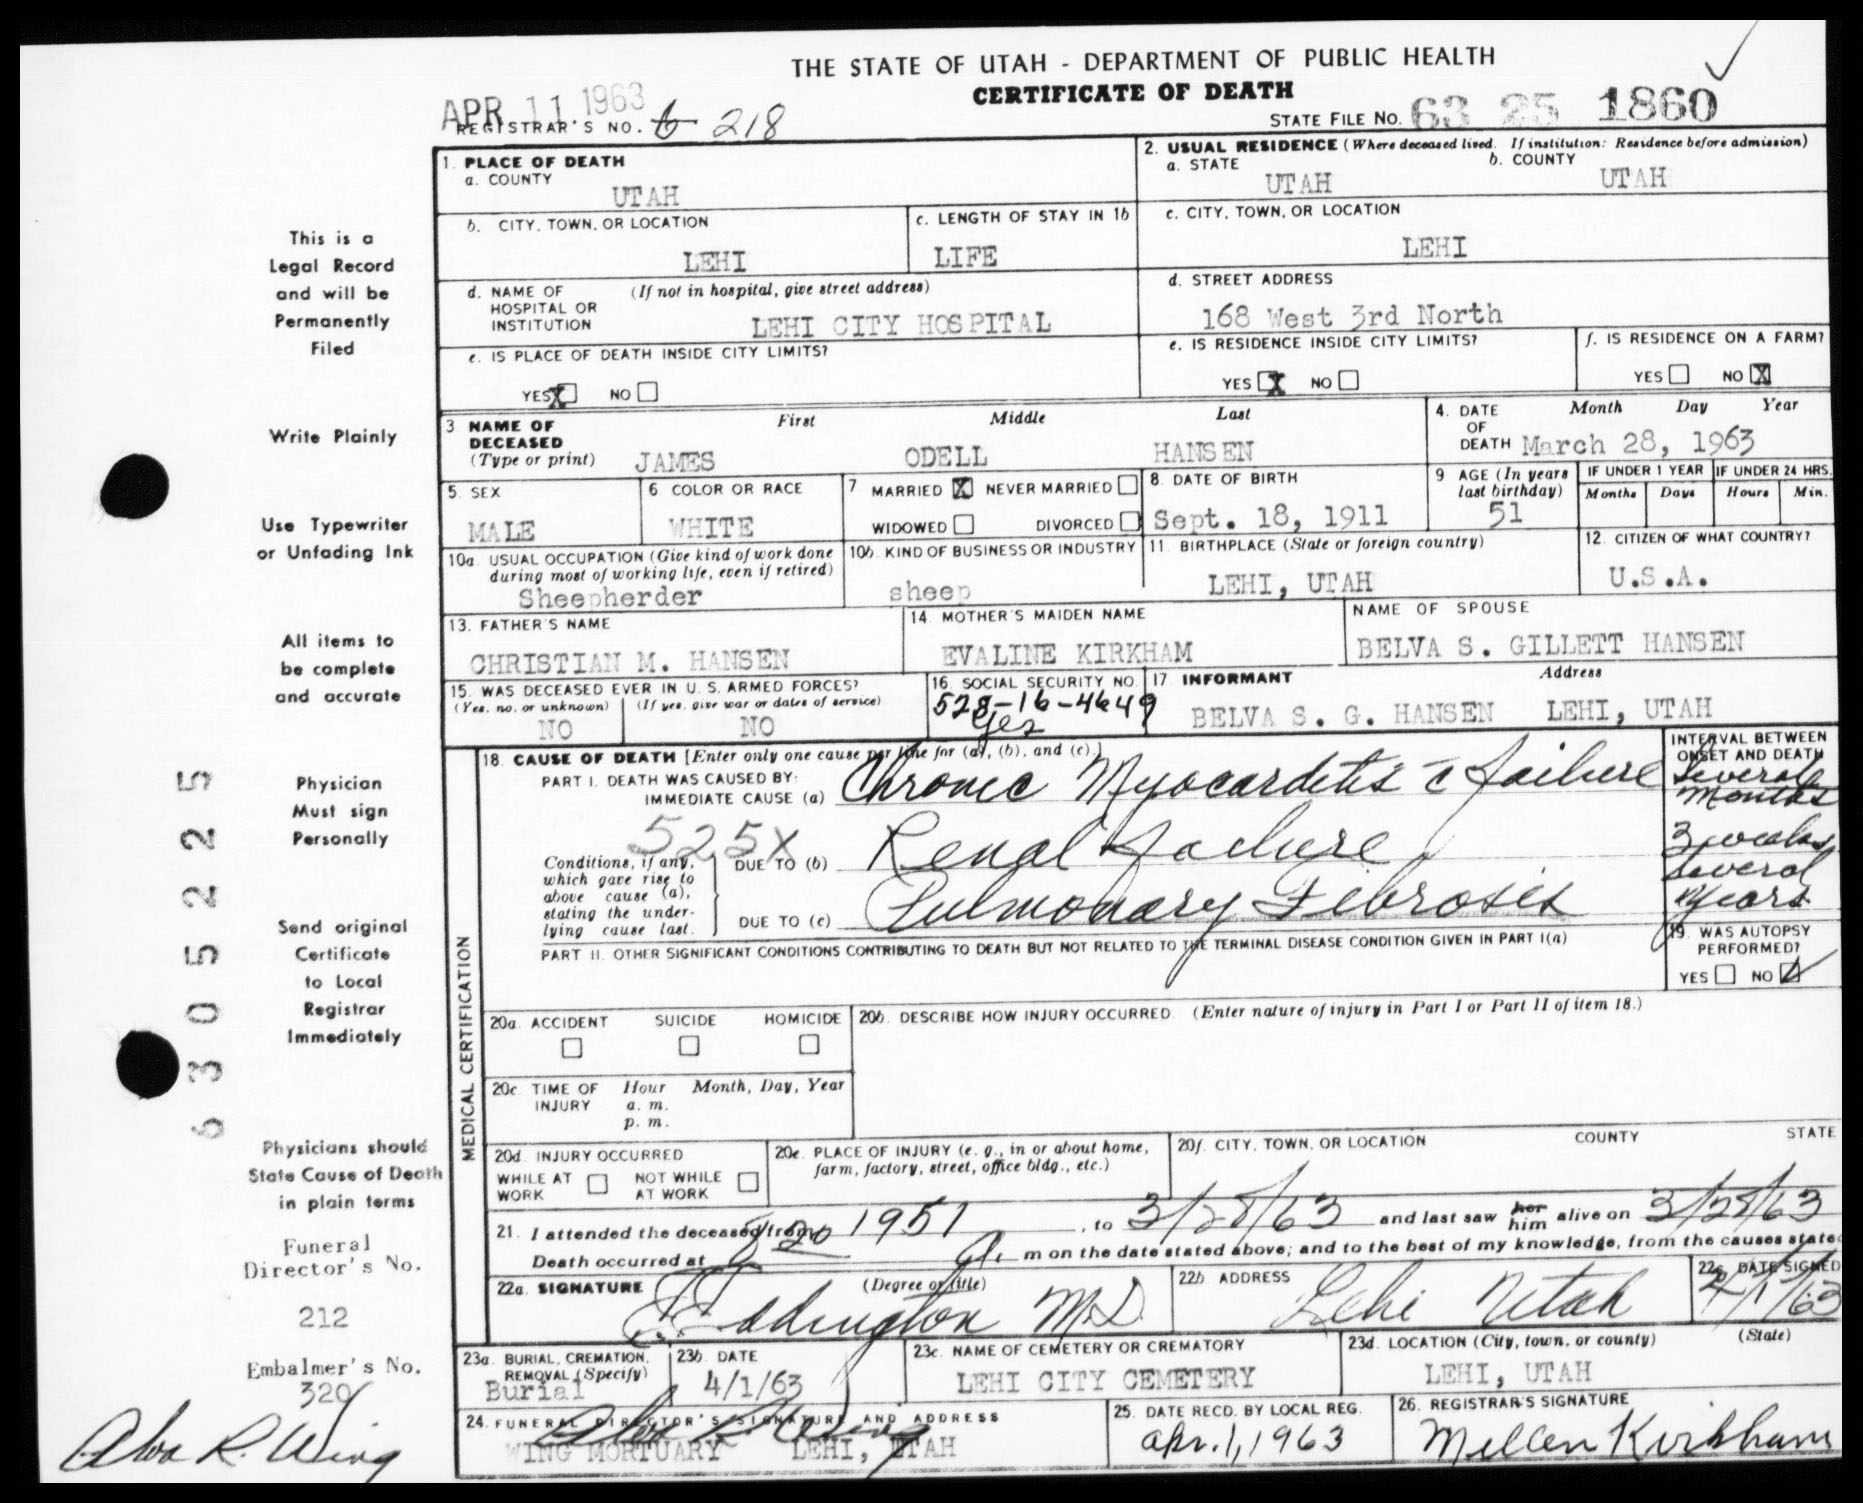 THE STATE OF UTAH - DEPARTMENT OF PUBLIC HEALTH
CERTIFICATE OF DEATH
APR 11 1963
REGISTRAR'S NO. 6 218
STATE FILE NO. 63 25 1860
1. PLACE OF DEATH
a. COUNTY
UTAH
2. USUAL RESIDENCE (Where deceased lived. If institution: Residence before admission)
a. STATE b. COUNTY
UTAH UTAH
b. CITY, TOWN, OR LOCATION
LEHI
c. LENGTH OF STAY IN 1b
LIFE
c. CITY, TOWN, OR LOCATION
LEHI
d. NAME OF HOSPITAL OR INSTITUTION (If not in hospital, give street address)
LEHI CITY HOSPITAL
d. STREET ADDRESS
168 West 3rd North
e. IS PLACE OF DEATH INSIDE CITY LIMITS?
YES X NO
e. IS RESIDENCE INSIDE CITY LIMITS?
YES X NO
f. IS RESIDENCE ON A FARM?
YES NO X
3 NAME OF DECEASED (Type or print)
First Middle Last
JAMES ODELL HANSEN
4. DATE OF DEATH Month Day Year
March 28, 1963
5. SEX
MALE
6 COLOR OR RACE
WHITE
7 MARRIED X NEVER MARRIED
WIDOWED DIVORCED
8. DATE OF BIRTH
Sept. 18, 1911
9 AGE (In years last birthday)
51
IF UNDER 1 YEAR IF UNDER 24 HRS.
Months Days Hours Min.
10a. USUAL OCCUPATION (Give kind of work done during most of working life, even if retired)
Sheepherder
10b. KIND OF BUSINESS OR INDUSTRY
sheep
11. BIRTHPLACE (State or foreign country)
LEHI, UTAH
12. CITIZEN OF WHAT COUNTRY?
U.S.A.
13. FATHER'S NAME
CHRISTIAN M. HANSEN
14. MOTHER'S MAIDEN NAME
EVALINE KIRKHAM
NAME OF SPOUSE
BELVA S. GILLETT HANSEN
15. WAS DECEASED EVER IN U. S. ARMED FORCES?
(Yes, no, or unknown) (If yes, give war or dates of service)
NO NO
16. SOCIAL SECURITY NO.
528-16-4649
yes
17 INFORMANT Address
BELVA S. G. HANSEN LEHI, UTAH
MEDICAL CERTIFICATION
18. CAUSE OF DEATH [Enter only one cause per line for (a), (b), and (c).]
PART I. DEATH WAS CAUSED BY:
IMMEDIATE CAUSE (a) Chronic Myocarditis c̄ failure
INTERVAL BETWEEN ONSET AND DEATH
Several Months
525X
Conditions, if any, which gave rise to above cause (a), stating the underlying cause last.
DUE TO (b) Renal failure
3 weeks
DUE TO (c) Pulmonary Fibrosis
Several years
PART II. OTHER SIGNIFICANT CONDITIONS CONTRIBUTING TO DEATH BUT NOT RELATED TO THE TERMINAL DISEASE CONDITION GIVEN IN PART I(a)
19. WAS AUTOPSY PERFORMED?
YES NO
20a. ACCIDENT SUICIDE HOMICIDE
20b. DESCRIBE HOW INJURY OCCURRED. (Enter nature of injury in Part I or Part II of item 18.)
20c. TIME OF INJURY Hour Month, Day, Year
a. m.
p. m.
20d. INJURY OCCURRED
WHILE AT WORK NOT WHILE AT WORK
20e. PLACE OF INJURY (e. g., in or about home, farm, factory, street, office bldg., etc.)
20f. CITY, TOWN, OR LOCATION COUNTY STATE
21. I attended the deceased from 1951, to 3/28/63 and last saw her him alive on 3/28/63
Death occurred at 8 20 a. m on the date stated above; and to the best of my knowledge, from the causes state
22a. SIGNATURE (Degree or title)
Eddington M.D.
22b. ADDRESS
Lehi Utah
22c. DATE SIGNED
4/1/63
23a. BURIAL, CREMATION, REMOVAL (Specify)
Burial
23b. DATE
4/1/63
23c. NAME OF CEMETERY OR CREMATORY
LEHI CITY CEMETERY
23d. LOCATION (City, town, or county) (State)
LEHI, UTAH
24. FUNERAL DIRECTOR'S SIGNATURE AND ADDRESS
Alva R. Wing
WING MORTUARY LEHI, UTAH
25. DATE RECD. BY LOCAL REG.
Apr. 1, 1963
26. REGISTRAR'S SIGNATURE
Millen Kirkham
This is a
Legal Record
and will be
Permanently
Filed
Write Plainly
Use Typewriter
or Unfading Ink
All items to
be complete
and accurate
Physician
Must sign
Personally
Send original
Certificate
to Local
Registrar
Immediately
Physicians should
State Cause of Death
in plain terms
Funeral
Director's No.
212
Embalmer's No.
320
Alva R. Wing
63052225